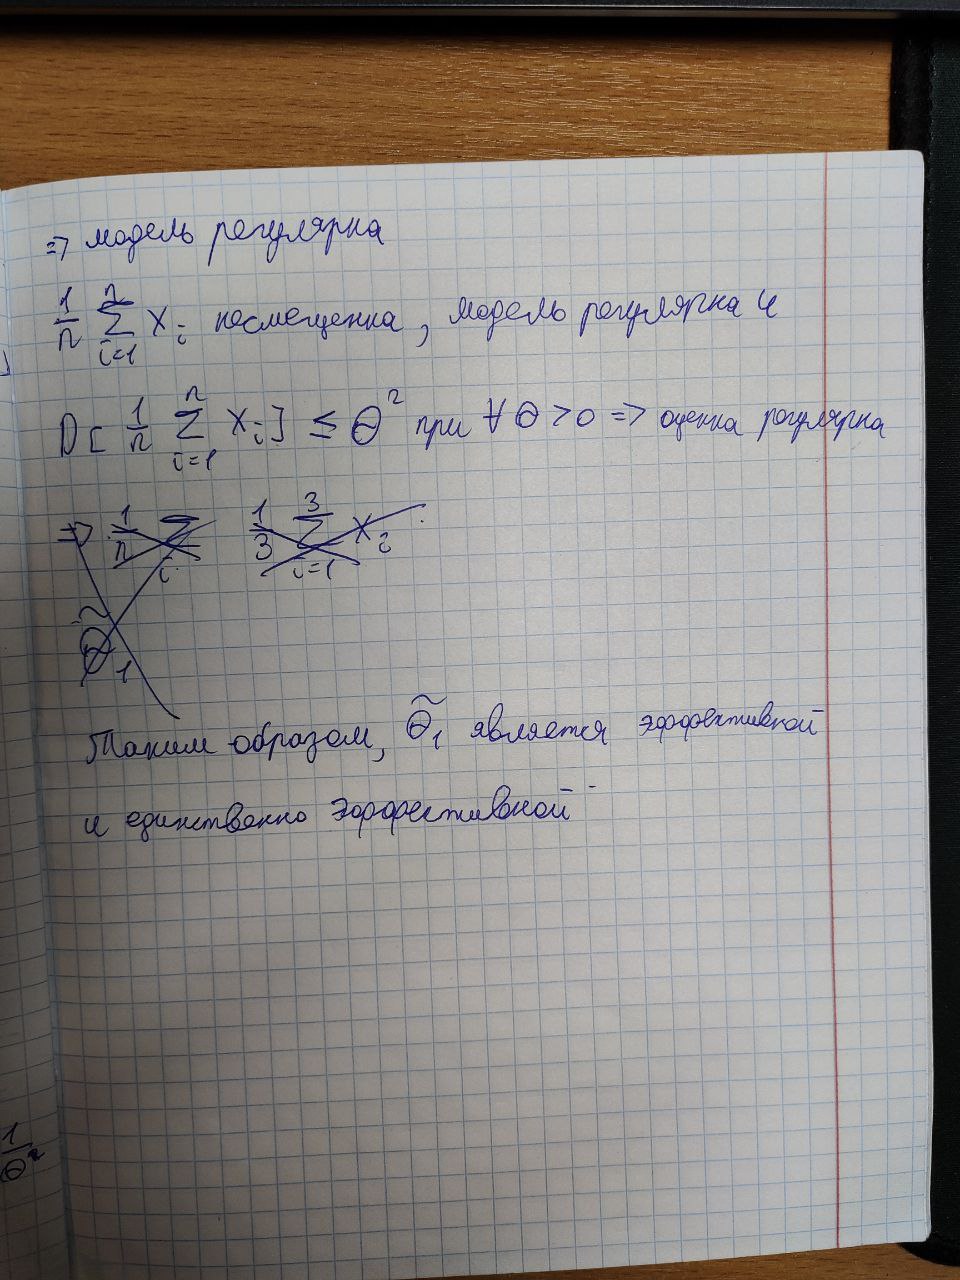 => модель регулярна
1/n ∑_{i=1}^{n} X_i несмещенна, модель регулярна и
D[1/n ∑_{i=1}^{n} X_i] ≤ Θ^2 при ∀ Θ > 0 => оценка регулярна
=> 1/n ∑_{i} 1/3 ∑_{i=1}^{3} X_i
Θ̃_1
Таким образом, Θ̃_1 является эффективной
и единственно эффективной
1/Θ^2